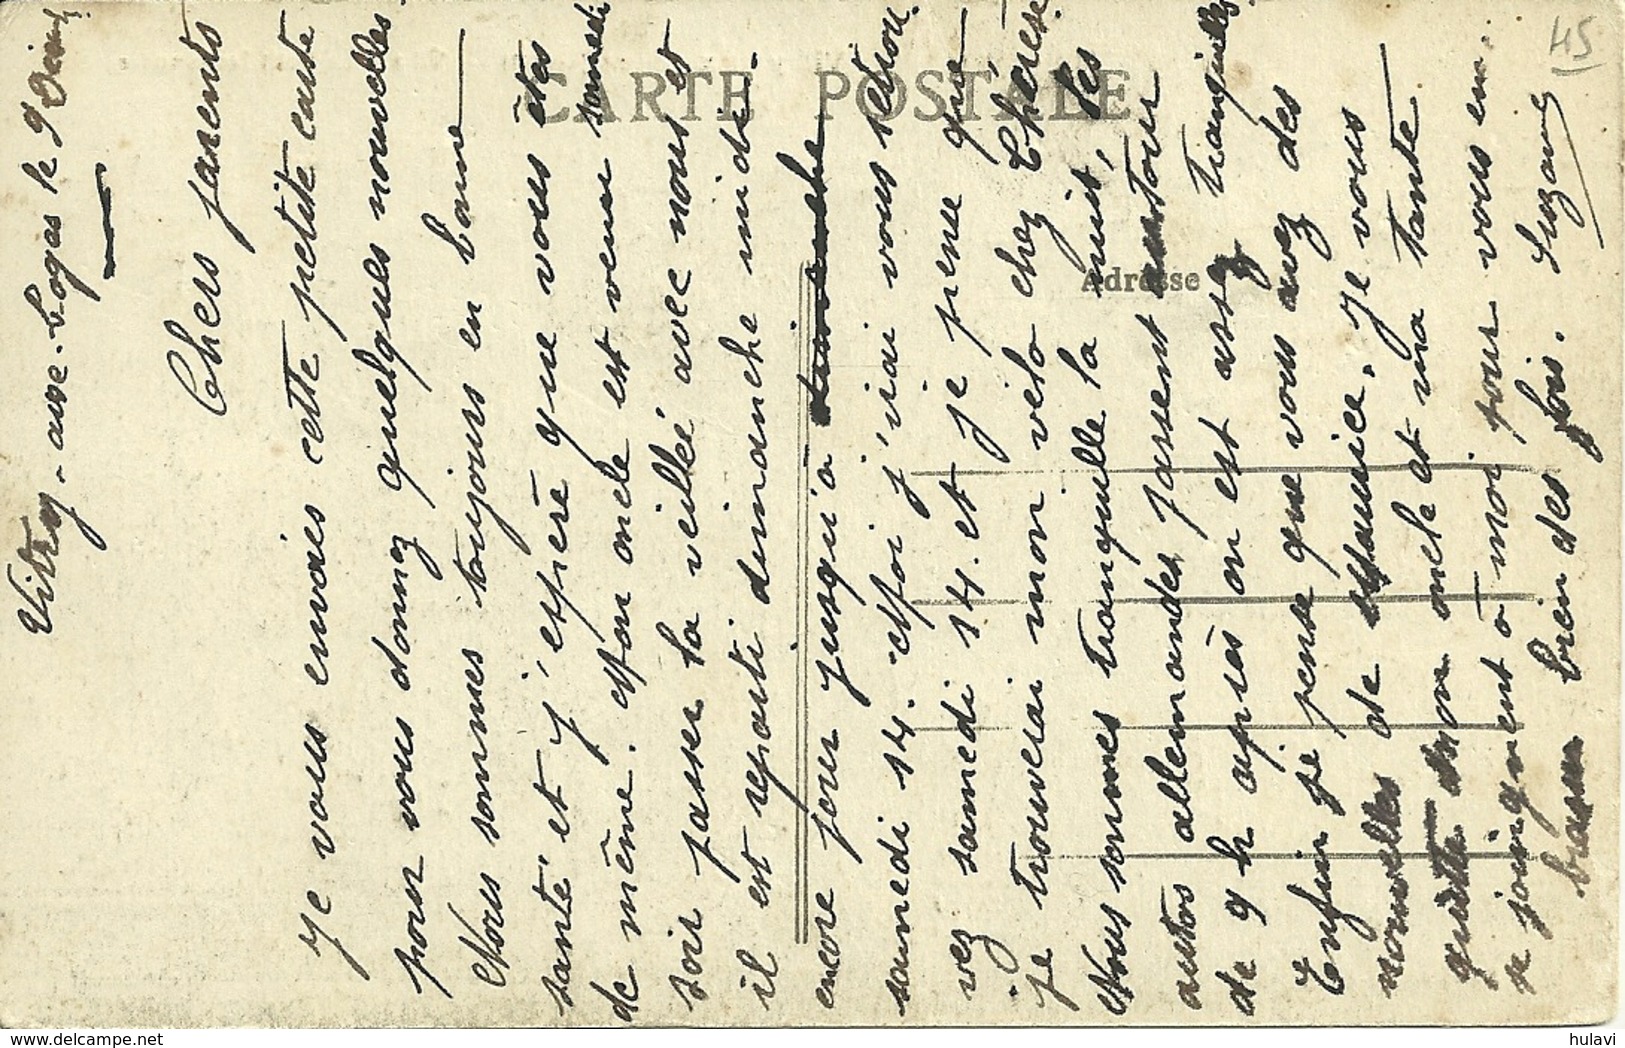 Vitry-aux-Loges le 9
Chers parents
Je vous envoies cette petite carte
pour vous donnez quelques nouvelles.
Nous sommes toujours en bonne
santé et j'espère que vous êtes
de même. Mon oncle est venu samedi
soir passer la veillée avec nous et
il est reparti dimanche midi.
encore pour jusqu'a dimanche
samedi 14. Moi j'irai vous retrou-
vez samedi 14. et je pense que
je trouverai mon vélo chez Thérèse.
Nous sommes tranquille la nuit, les
autos allemandes passent autour
de 9 h après on est assez tranquilles
Enfin je pense que vous avez des
nouvelles de Maurice. Je vous
quitte mon oncle et ma tante
se joignent à moi pour vous em-
brasser bien des fois. Suzanne
CARTE POSTALE
Adresse
45
hulavi